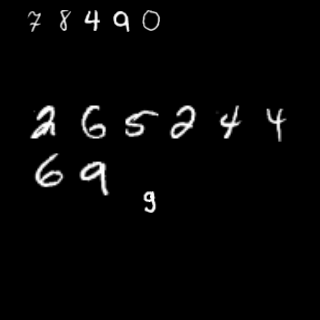 7 8 4 9 0
2 6 5 2 4 4
6 9
9